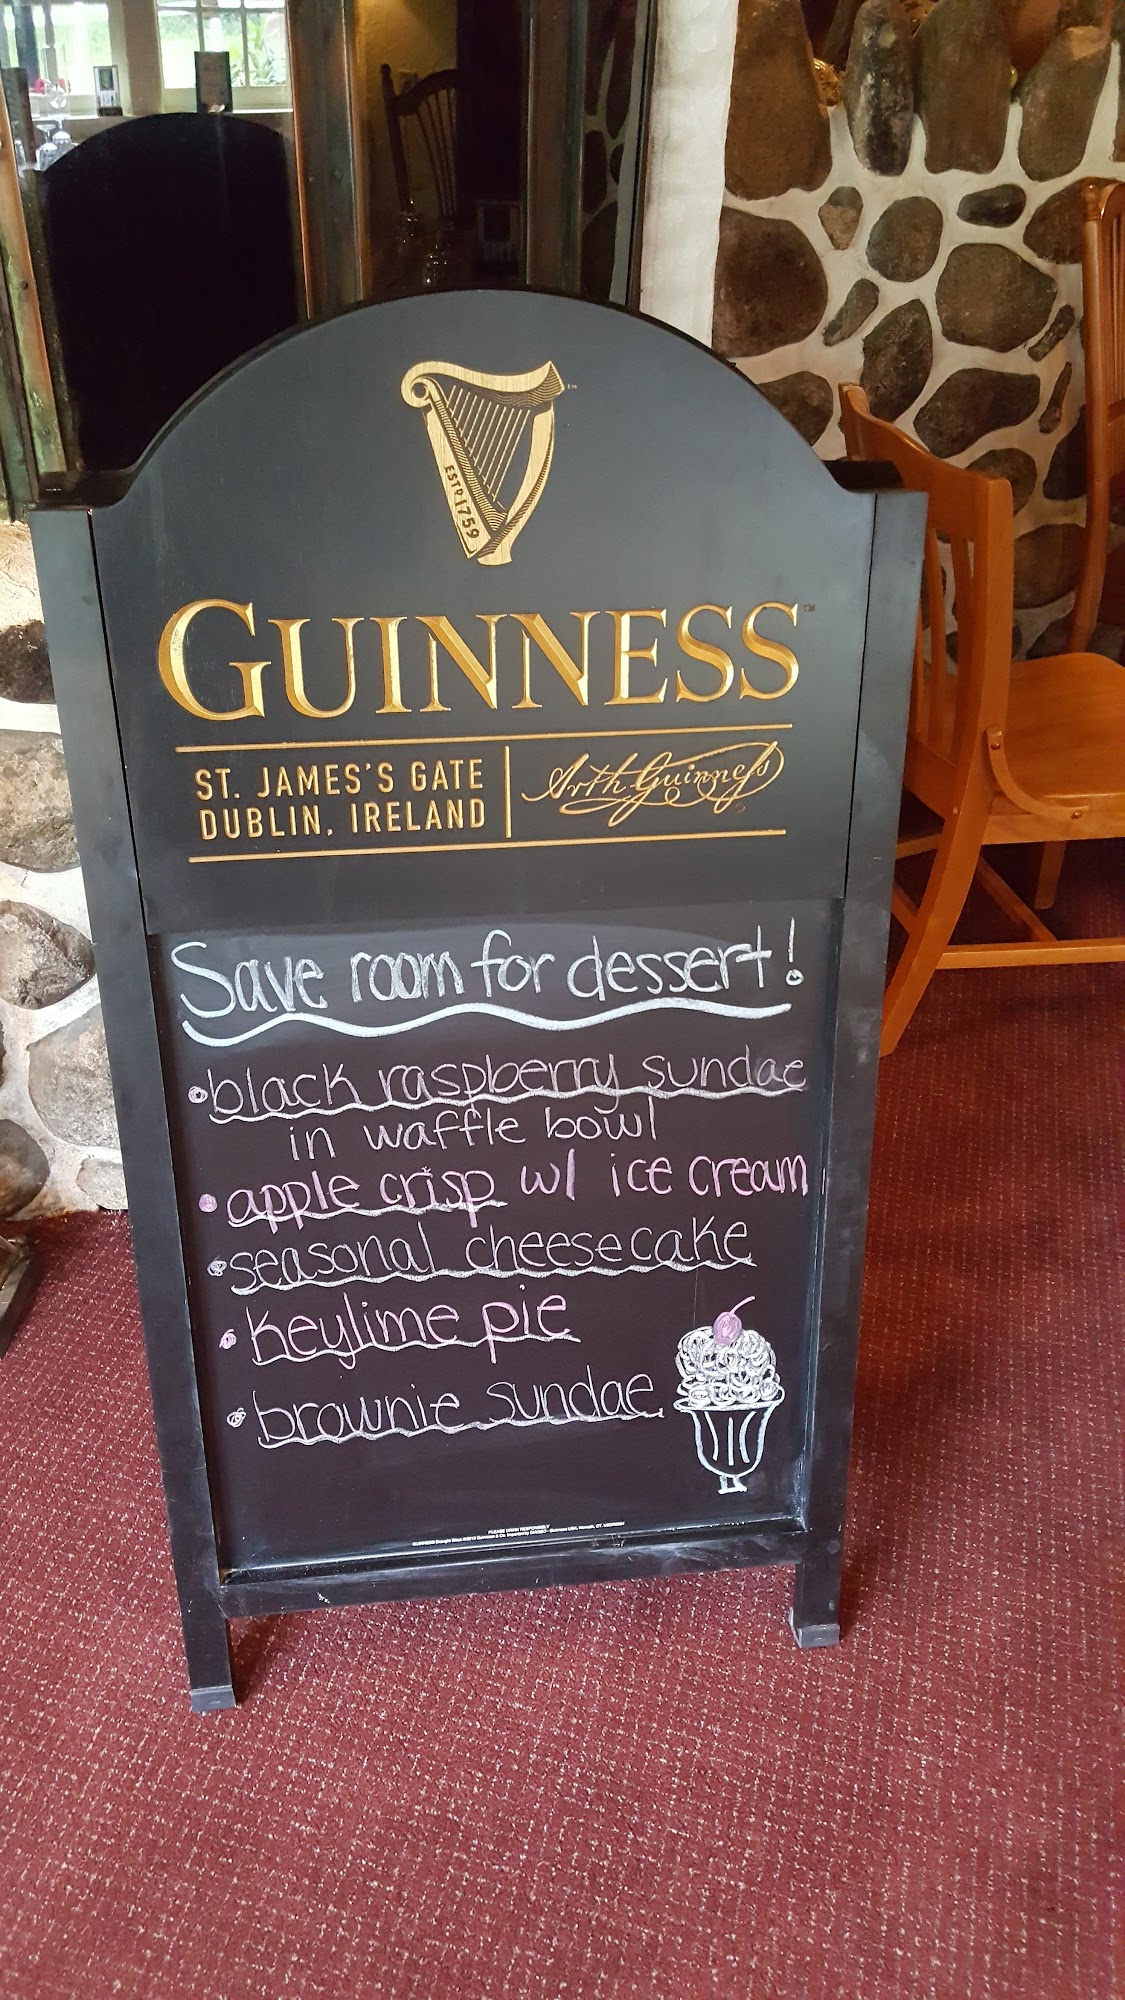 ESTD 1759
GUINNESS™
ST. JAMES'S GATE
DUBLIN, IRELAND
Arth Guinness
Save room for dessert!
• black raspberry sundae
in waffle bowl
• apple crisp w/ ice cream
• seasonal cheesecake
• Keylime pie
• brownie sundae
PLEASE DRINK RESPONSIBLY